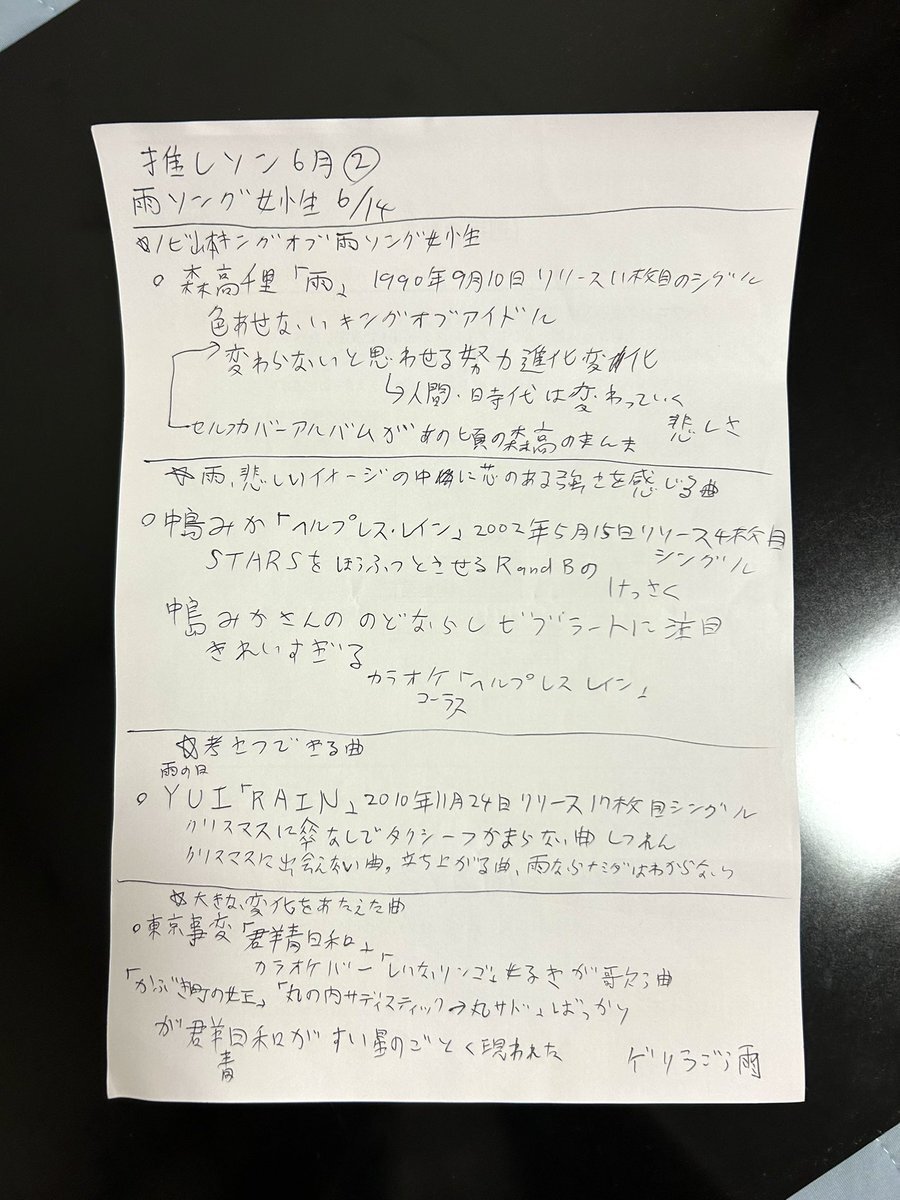 推しソン6月②
雨ソング女性 6/14
☆ノビ山本キングオブ雨ソング女性
○ 森高千里「雨」 1990年9月10日リリース11枚目のシングル
色あせないキングオブアイドル
変わらないと思わせる努力進化変化
↳人間・時代は変わっていく
悲しさ
セルフカバーアルバムがあの頃の森高のまんま
☆雨、悲しいイメージの中に芯のある強さを感じる曲
○中島みか「ヘルプレス・レイン」2002年5月15日リリース4枚目
シングル
STARSをほうふつとさせるRandBの
けっさく
中島みかさんの のどならしビブラートに注目
きれいすぎる
カラオケ「ヘルプレス レイン」
コーラス
☆考さつできる曲
雨の日
○ YUI「RAIN」2010年11月24日リリース17枚目シングル
クリスマスに傘なしでタクシーつかまらない曲 しつれん
クリスマスに出会えない曲。立ち上がる曲、雨ならナミダはわからない
☆大きな変化をあたえた曲
○東京事変「群青日和」
カラオケバー「しいなリンゴ」好きが歌う曲
「かぶき町の女王」「丸の内サディスティック→丸サド」ばっかり
が群青日和がすい星のごとく現われた
ゲリラごう雨